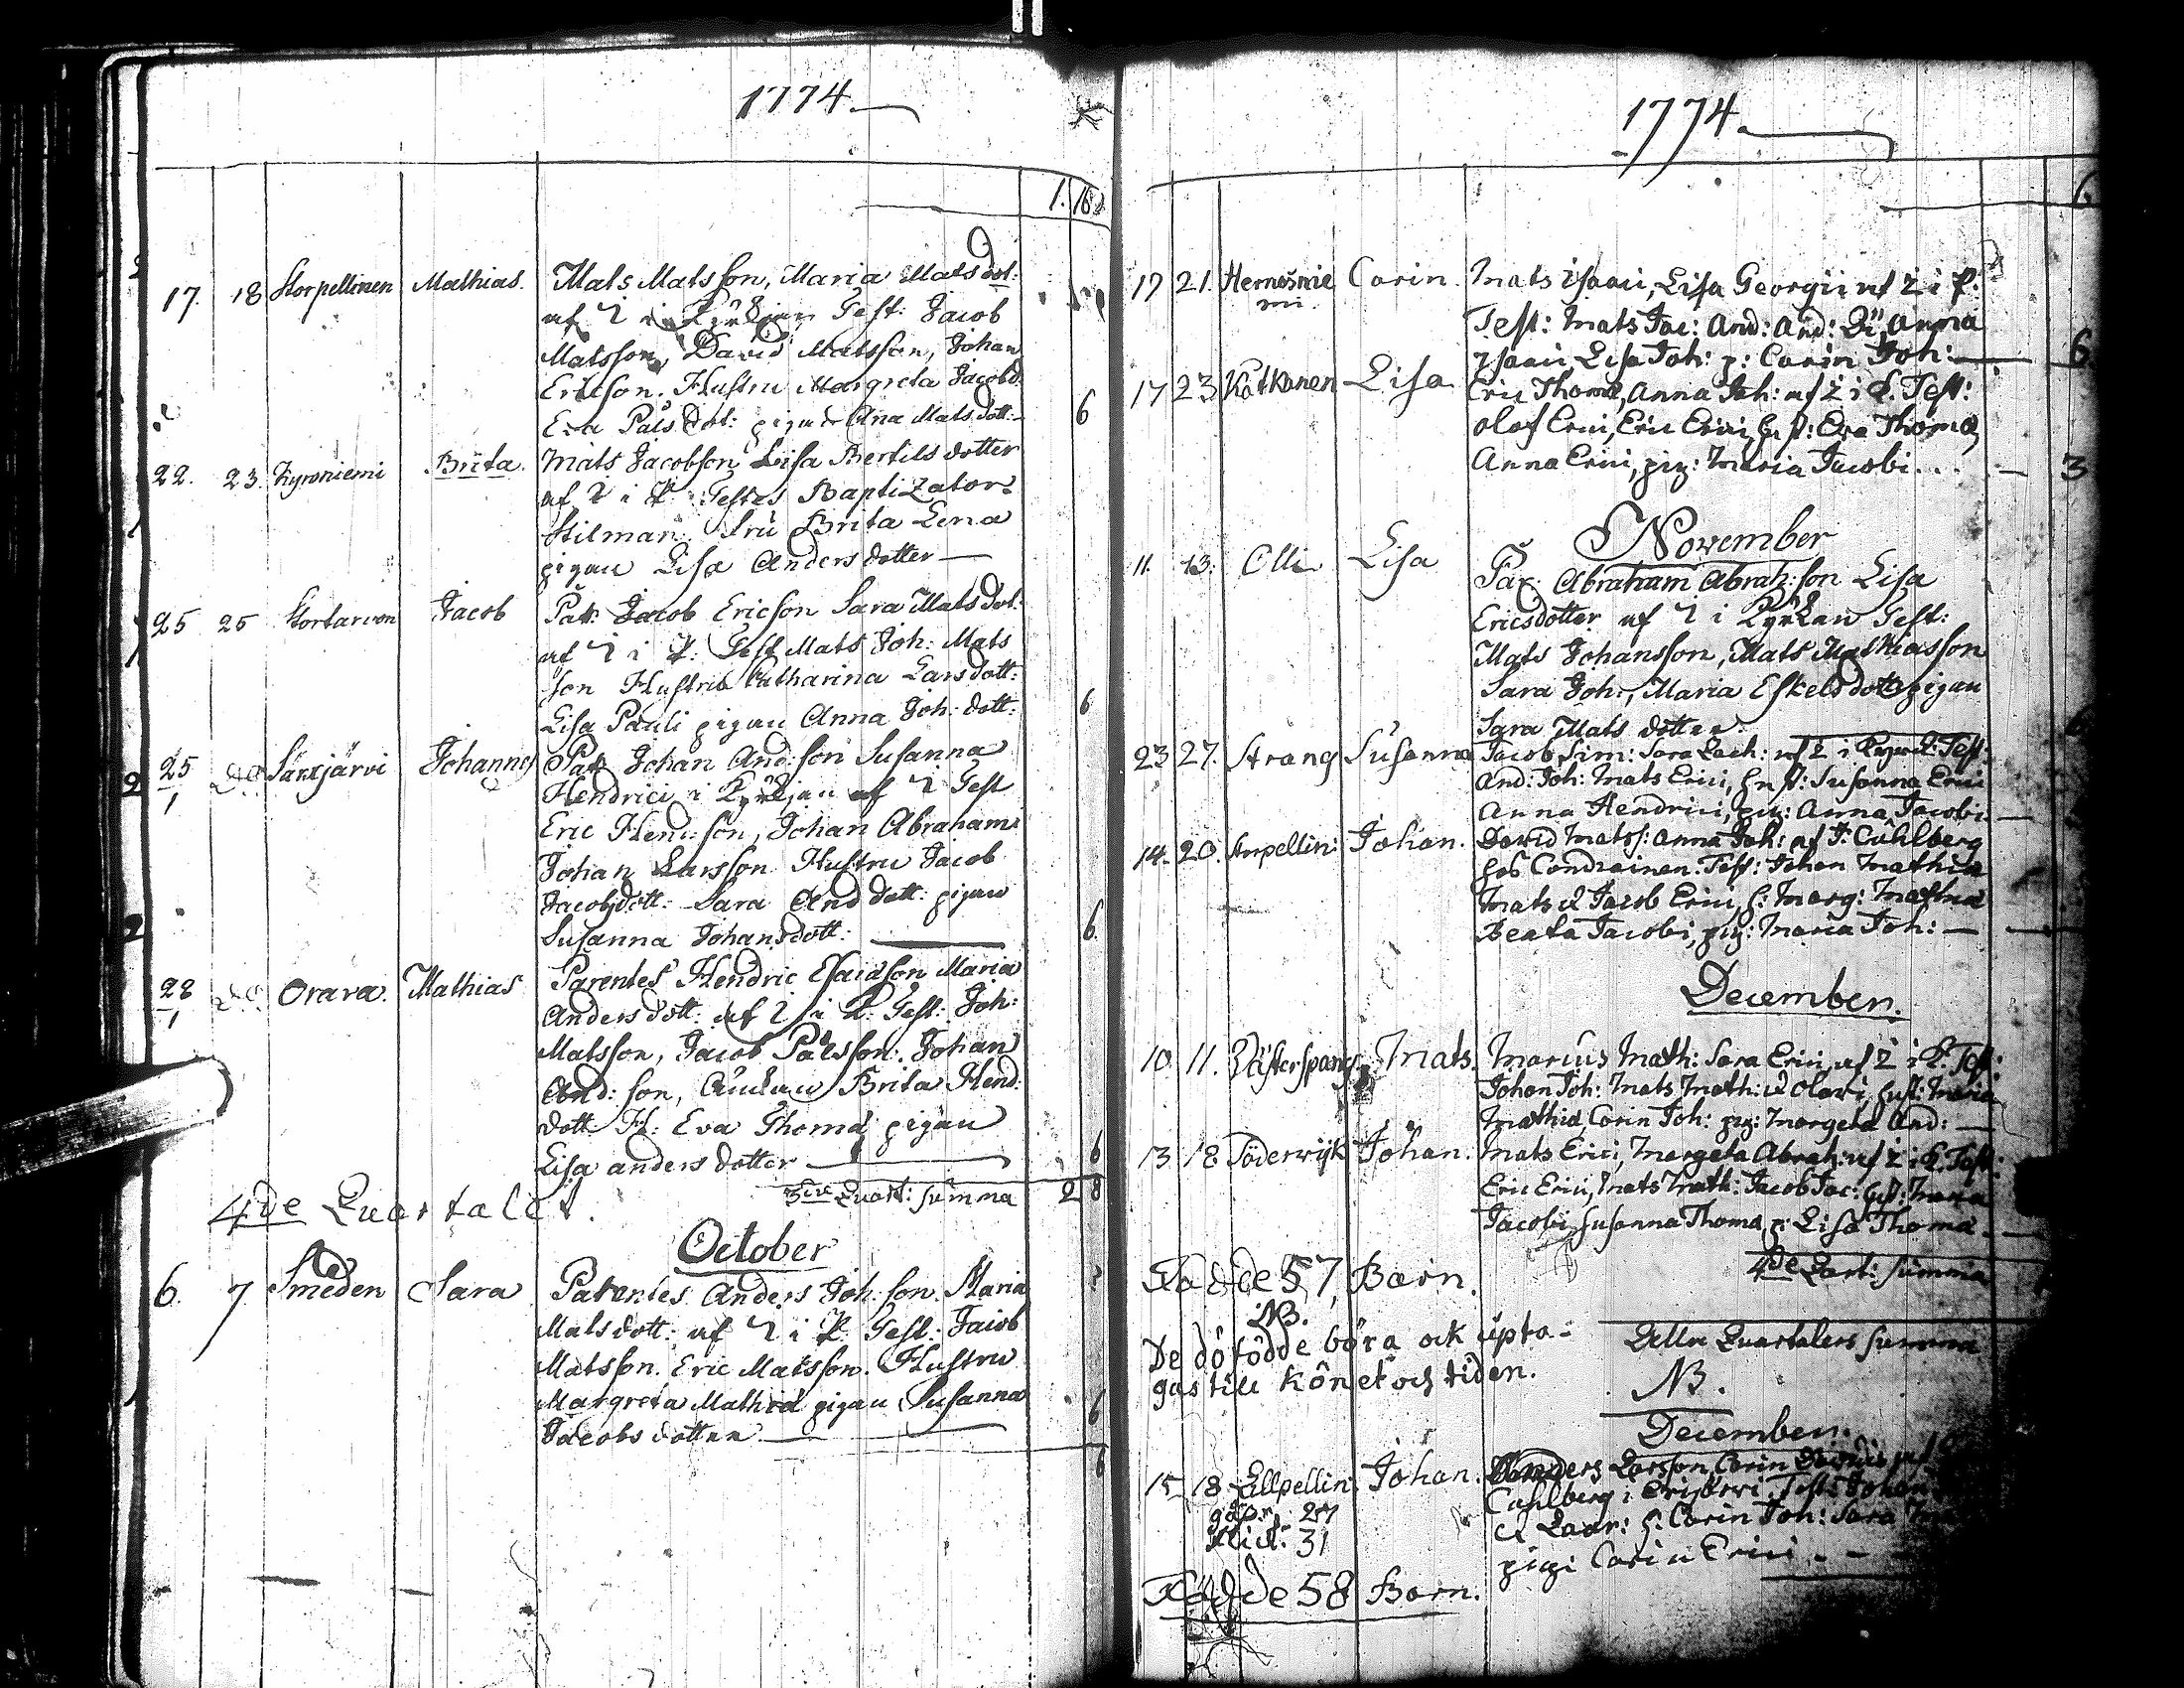 1774.
1. 16
17. 18 Storpellinen Mathias. Mats Matsson, Maria Mats dot:
af 2 i Kyrkian Test: Jacob
Matsson, David Matsson, Johan
Ericson. Hustru Margreta Jacobd
Eva Påls dot: pigan Ana Matsdott: 6
22. 23. Kyroniemi Brita. Mats Jacobson Lisa Bertils dotter
af 2 i K: Testes Baptizator
Stilman. Fru Brita Lena
pigan Lisa Anders dotter
25 25 Stortarvon Jacob Par: Jacob Ericson Sara Mats dot:
af 2 i K: Test Mats Joh: Mats
son Hustru Catharina Larsdott:
Lisa Pauli pigan Anna Joh: dott: 6
25/1 do Särkjärvi Johannes Par Johan And: son Susanna
Hendrici i Kyrkian af 2 Test
Eric Hend: son, Johan Abrahami
Johan Larsson Hustru Jacob
Jacobsdott: Sara And dott: pigan
Susanna Johansdott: 6
28/1 do Orava. Mathias Parentes Hendric Esaiasson Maria
Anders dott: af 2 i K. Test: Joh:
Matsson, Jacob Pålsson. Johan
And: son, Änkan Brita Hend:
dott H: Eva Thomæ pigan
Lisa anders dotter 6
3die Quart: summa 2 8
4de Quartalet.
October
6. 7. Smeden Sara Parentes Anders Joh: son Maria
Matsdott: af 2 i K Test: Jacob
Matsson. Eric Matsson. Hustru
Margreta Mathiæ pigan Susanna 6
Jacobs dotter
6
1774.
6
17 21. Hernesnie Carin. Mats Isaaci, Lisa Georgii af 2 i K:
mi. Test: Mats Jac: And: And: Anna
Isaaci Lisa Joh: p: Carin Joh: 6
17 23 Kotkanen Lisa Eric Thomæ, Anna Joh: af 2 i K. Test:
Olof Erici, Eric Erici, Eva Thomæ,
Anna Erici, pig: Maria Jacobi 3
November
11. 13. Olli Lisa Par: Abraham Abrah: son Lisa
Ericsdotter af 2 i Kyrkan Test:
Mats Johansson, Mats Mathiasson
Sara Joh:, Maria Eskelsdott pigan
Sara Mats dotter
23 27. Strang Susanna Jacob Sim: Sara Zach: af 2 i Test:
And: Joh: Mats Erici, Susanna Erici
Anna Hendrici, pig: Anna Jacobi
14. 20. Johan. David Mats: Anna Joh: af Cahlberg
hos Condrainen. Test: Johan Mathiæ
Mats & Jacob Erici, h: Marg:
Beata Jacobi, pig: Maria Joh:
December.
10 11. Västerspång Mats. Marcus Math: Sara Erici af 2 i K. Test:
Johan Joh: Mats Math: & Olavi, hust: Maria
Mathiæ, Carin Joh: pig: Margeta And:
13 18 Söderwijk Johan. Mats Erici, Margeta Abrah: af 2 i K. Test:
Eric Erici, Mats Math: Jacob Jac: Maria
Jacobi Susanna Thomæ, p: Lisa Thomæ
4de Qvart: summa
Födde 57, Barn.
NB.
De dödfödde böra ock upta-
gas till könet och tiden.
Alla Quartalers summa
NB.
December.
15 18 Lillpellin: Johan. Anders Larsson, Carin Davidis
Cahlberg i Test: Johan
& Laur: h: Carin Joh: Sara
pig: Carin Erici
27
31
Födde 58 Barn.